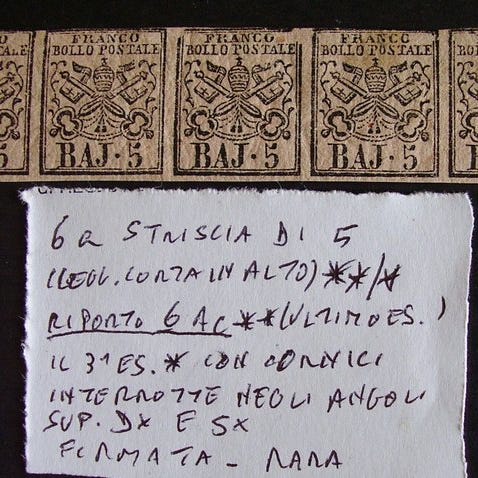 FRANCO FRANCO FRANCO
BOLLO POSTALE BOLLO POSTALE BOLLO POSTALE
5 BAJ·5 BAJ·5 BAJ·5
6 a STRISCIA DI 5
(LEGG. CORTA IN ALTO) **/*
RIPORTO 6 Ac ** (ULTIMO ES.)
IL 3° ES. * CON CORNICI
INTERROTTE NEGLI ANGOLI
SUP. DX E SX
FIRMATA - RARA